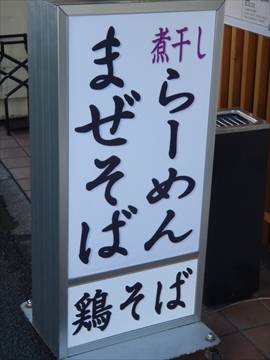 煮干し
らーめん
まぜそば
鶏そば